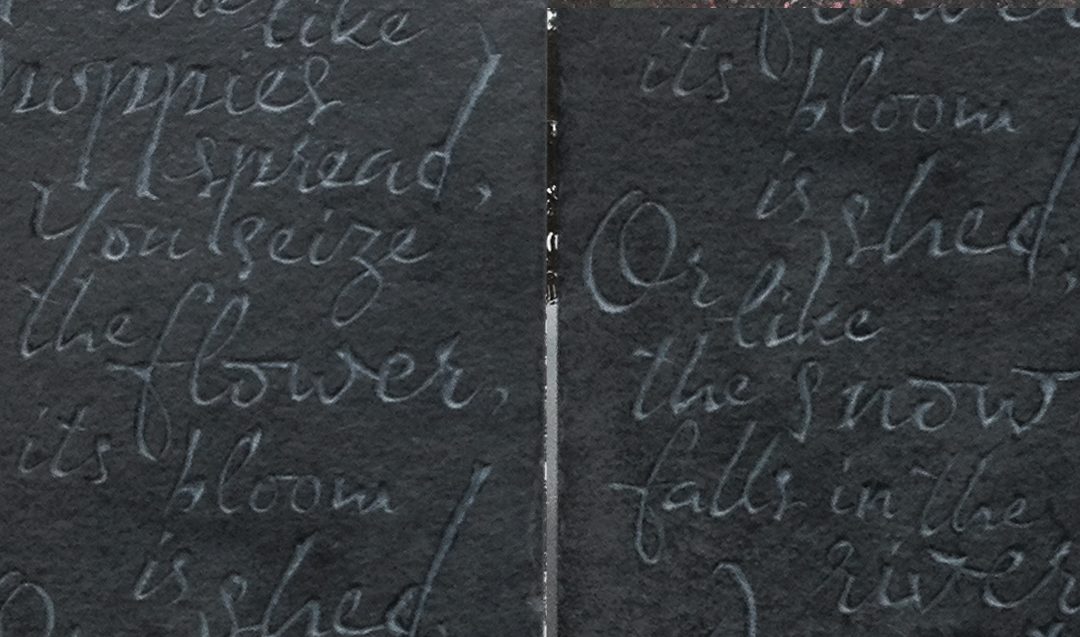 are like
poppies
spread,
You seize
the flower,
its bloom
is shed
flower
its bloom
is shed;
Or like
the snow
falls in the
river